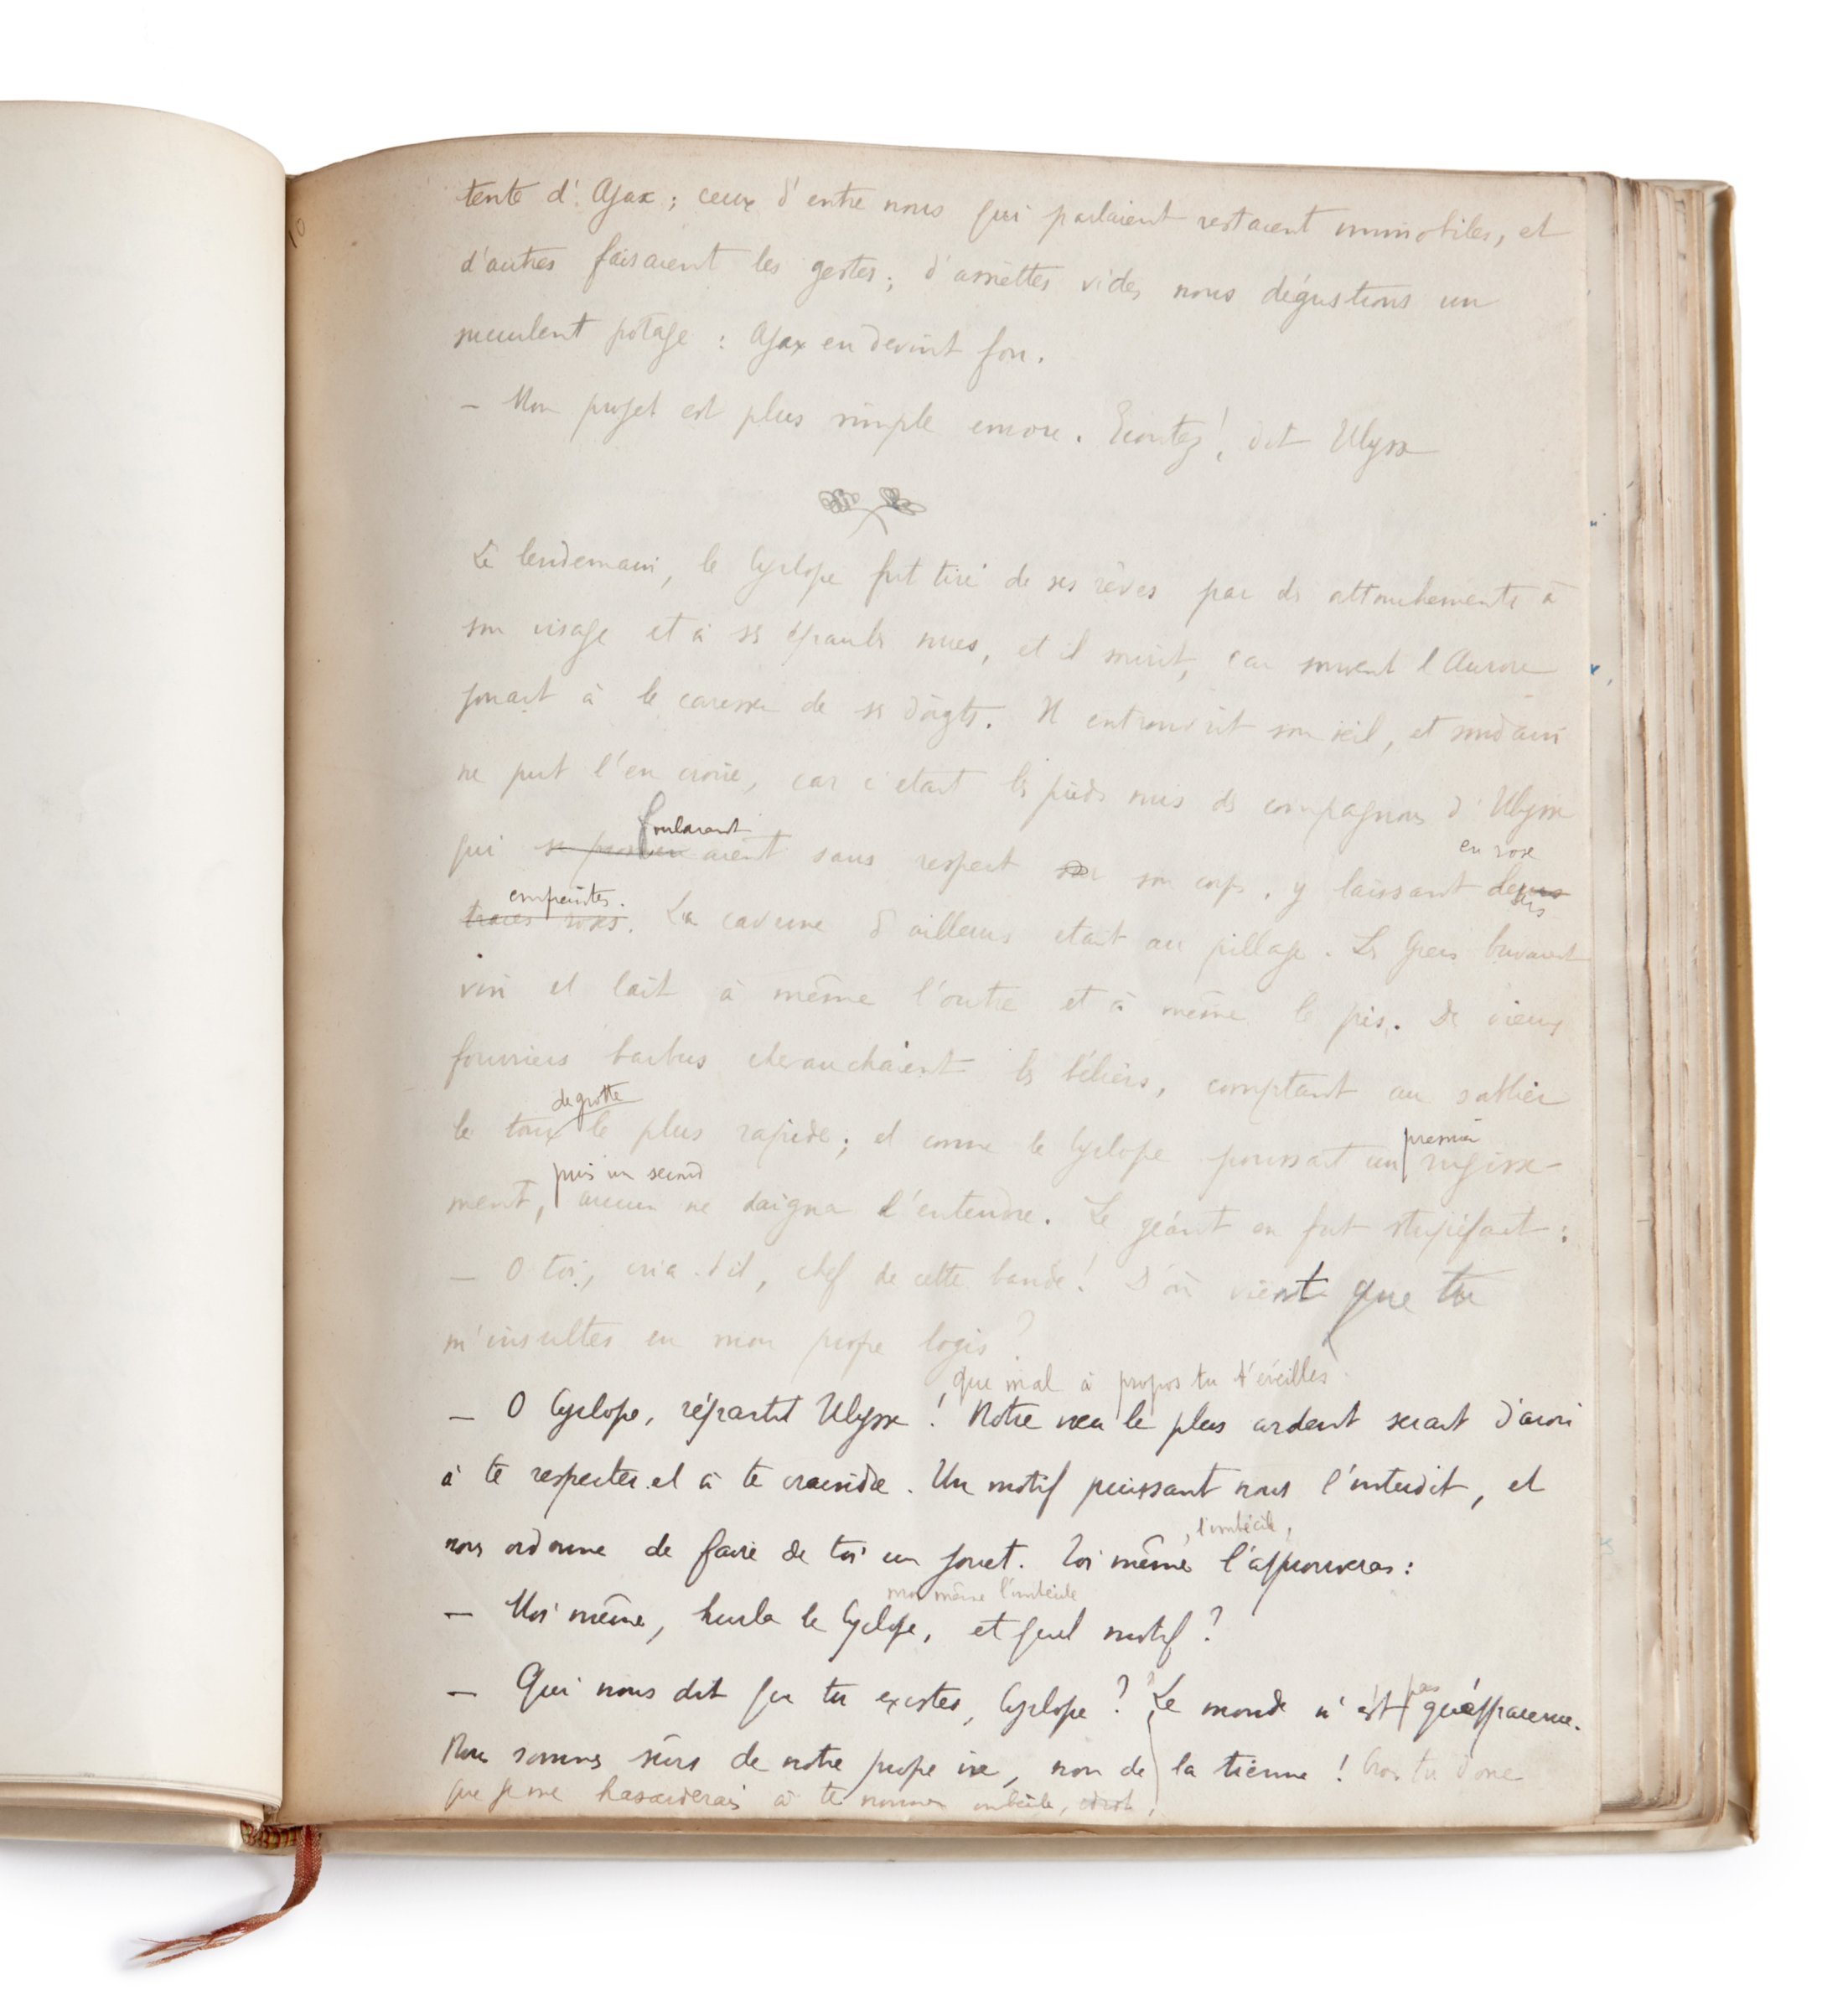 10
tente d'Ajax ; ceux d'entre nous qui parlaient restaient immobiles, et
d'autres faisaient les gestes ; d'assiettes vides nous dégustions un
succulent potage : Ajax en devint fou.
– Mon projet est plus simple encore. Ecoutez !, dit Ulysse
Le lendemain, le Cyclope fut tiré de ses rêves par des attouchements à
son visage et à ses épaules nues, et il sourit, car souvent l'Aurore
jouait à le caresser de ses doigts. Il entrouvrit son œil, et soudain
ne put l'en croire, car c'était les pieds nus des compagnons d'Ulysse
foulaient
qui aient sans respect son corps, y laissant des
en rose
empreintes.
traces roses. La caverne d'ailleurs était au pillage. Les Grecs buvaient
vin et lait à même l'outre et à même le pis. De vieux
fourriers barbus chevauchaient les béliers, comptant au sablier
de grotte
le tour le plus rapide ; et comme le Cyclope poussait un rugisse-
premier
puis un second
ment, aucun ne daigna l'entendre. Le géant en fut stupéfait :
– O toi, cria-t-il, chef de cette bande ! D'où vient que tu
m'insultes en mon propre logis ?
, que mal à propos tu t'éveilles
– O Cyclope, répartit Ulysse ! Notre vœu le plus ardent serait d'avoir
à te respecter et à te craindre. Un motif puissant nous l'interdit, et
, l'imbécile,
nous ordonne de faire de toi un jouet. Toi même l'approuveras :
moi même l'imbécile
– Moi même, hurla le Cyclope, et quel motif ?
– Qui nous dit que tu existes, Cyclope ? Le monde n'est qu'apparence.
pas
Nous sommes sûrs de notre propre vie, non de la tienne ! Crois tu donc
que je me hasarderais à te nommer imbécile,